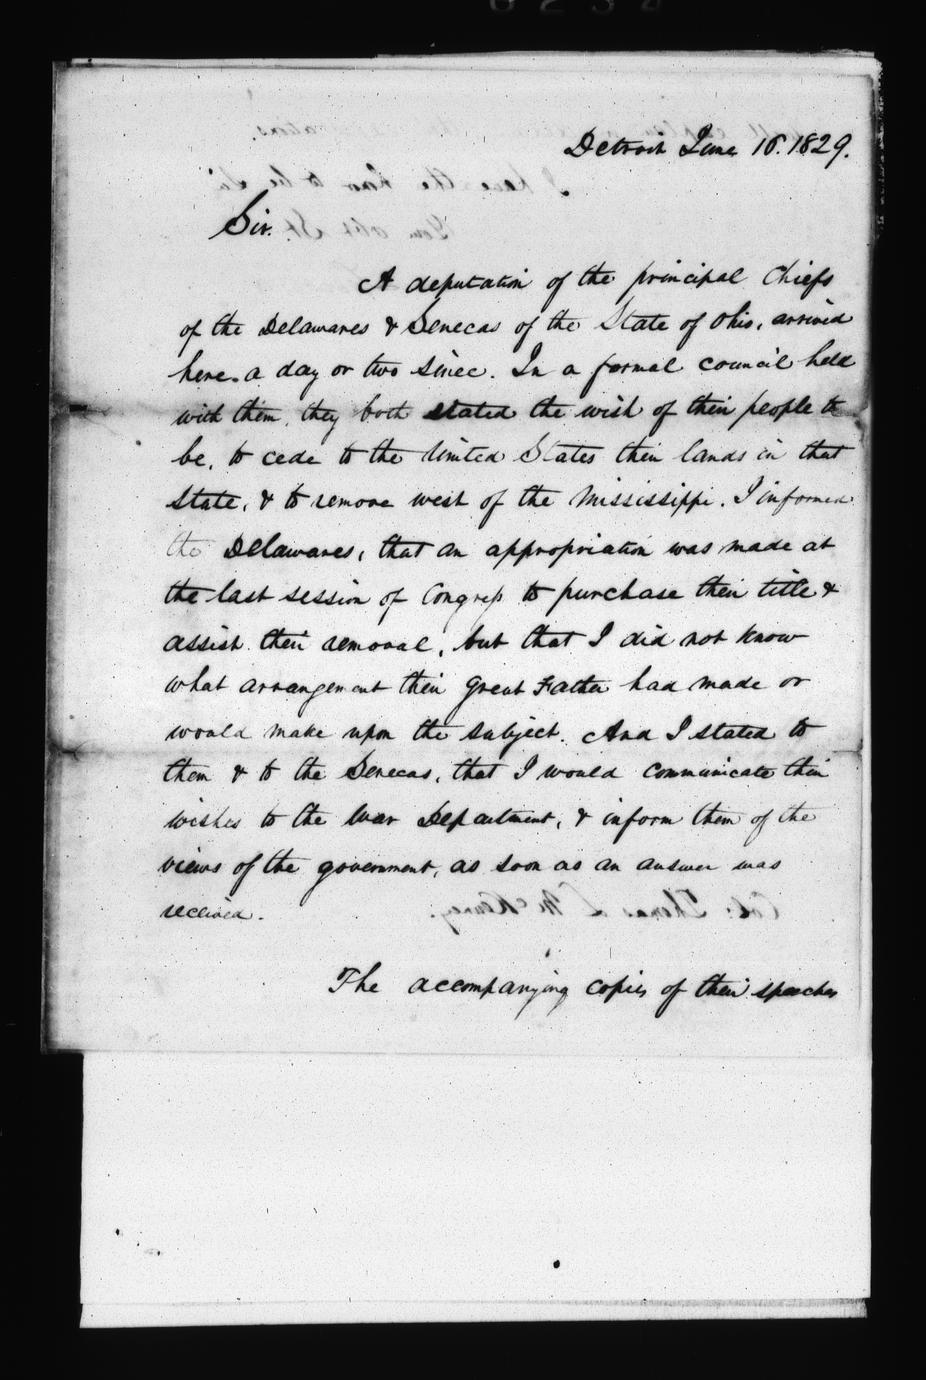 Detroit June 16. 1829.
Sir.
A deputation of the principal Chiefs
of the Delawares & Senecas of the State of Ohio, arrived
here a day or two since. In a formal council held
with them, they both stated the wish of their people to
be, to cede to the United States their lands in that
State, & to remove west of the Mississippi. I informed
the Delawares, that an appropriation was made at
the last session of Congress to purchase their title &
assist their removal, but that I did not know
what arrangement their Great Father had made or
would make upon the subject. And I stated to
them & to the Senecas, that I would communicate their
wishes to the War Department, & inform them of the
views of the government, as soon as an answer was
received.
The accompanying copies of their speeches